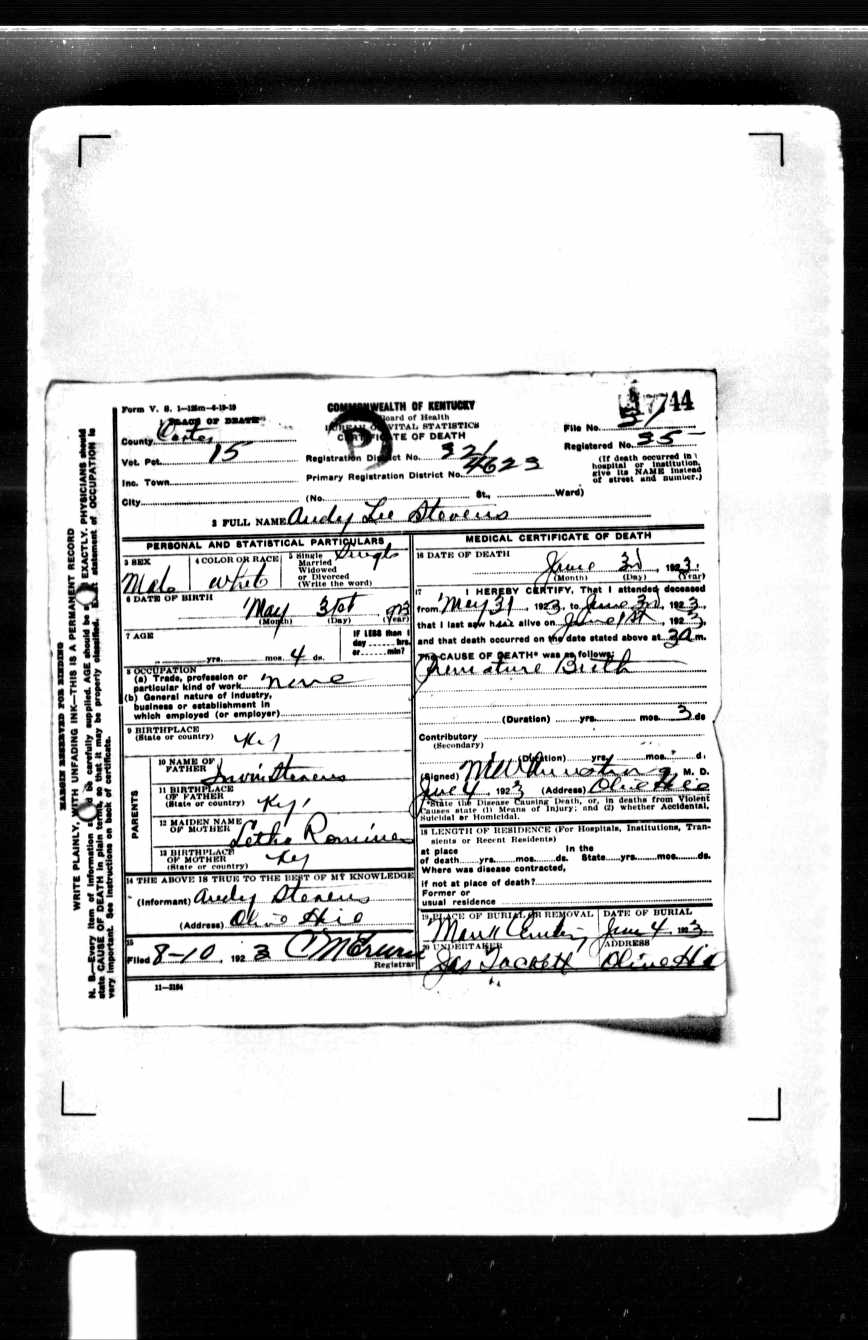 Form V. S. 1—125m—6-19-19
COMMONWEALTH OF KENTUCKY
7744
PLACE OF DEATH
Board of Health
BUREAU OF VITAL STATISTICS
CERTIFICATE OF DEATH
File No. 51
County Carter
Registered No. 35
Vot. Pct. 15
Registration District No. 321
(If death occurred in
hospital or institution,
give its NAME instead
of street and number.)
Inc. Town
Primary Registration District No. 4623
City (No. St., Ward)
2 FULL NAME Andy Lee Stevens
PERSONAL AND STATISTICAL PARTICULARS
3 SEX Male
4 COLOR OR RACE White
5 Single
Married
Widowed
or Divorced
(Write the word)
Single
6 DATE OF BIRTH
May 31st 923
(Month) (Day) (Year)
7 AGE
yrs. mos. 4 ds.
IF LESS than 1
day hrs.
or min?
8 OCCUPATION
(a) Trade, profession or
particular kind of work none
(b) General nature of industry,
business or establishment in
which employed (or employer)
9 BIRTHPLACE
(State or country) Ky
PARENTS
10 NAME OF
FATHER Irvin Stevens
11 BIRTHPLACE
OF FATHER
(State or country) Ky
12 MAIDEN NAME
OF MOTHER Letha Romines
13 BIRTHPLACE
OF MOTHER
(State or country) Ky
14 THE ABOVE IS TRUE TO THE BEST OF MY KNOWLEDGE
(Informant) Andy Stevens
(Address) Olive Hill
15
Filed 8-10, 1923
Registrar
11—3184
MEDICAL CERTIFICATE OF DEATH
16 DATE OF DEATH
June 3d, 1923
(Month) (Day) (Year)
17 I HEREBY CERTIFY, That I attended deceased
from May 31, 1923, to June 3d, 1923,
that I last saw h alive on June 1st, 1923,
and that death occurred on the date stated above at 3 a m.
The CAUSE OF DEATH* was as follows:
Premature Birth
(Duration) yrs. mos. 3 ds
Contributory
(Secondary)
(Duration) yrs. mos. d
(Signed) M. D.
June 4, 1923 (Address) Olive Hill
*State the Disease Causing Death, or, in deaths from Violent
Causes state (1) Means of Injury; and (2) whether Accidental,
Suicidal or Homicidal.
18 LENGTH OF RESIDENCE (For Hospitals, Institutions, Tran-
sients or Recent Residents)
at place In the
of death yrs. mos. ds. State yrs. mos. ds.
Where was disease contracted,
if not at place of death?
Former or
usual residence
19 PLACE OF BURIAL OR REMOVAL
DATE OF BURIAL
June 4 1923
20 UNDERTAKER
Jas Tackett
ADDRESS
Olive Hill
MARGIN RESERVED FOR BINDING
WRITE PLAINLY, WITH UNFADING INK—THIS IS A PERMANENT RECORD
N. B.—Every item of information should be carefully supplied. AGE should be EXACTLY. PHYSICIANS should
state CAUSE OF DEATH in plain terms, so that it may be properly classified. statement of OCCUPATION is
very important. See instructions on back of certificate.